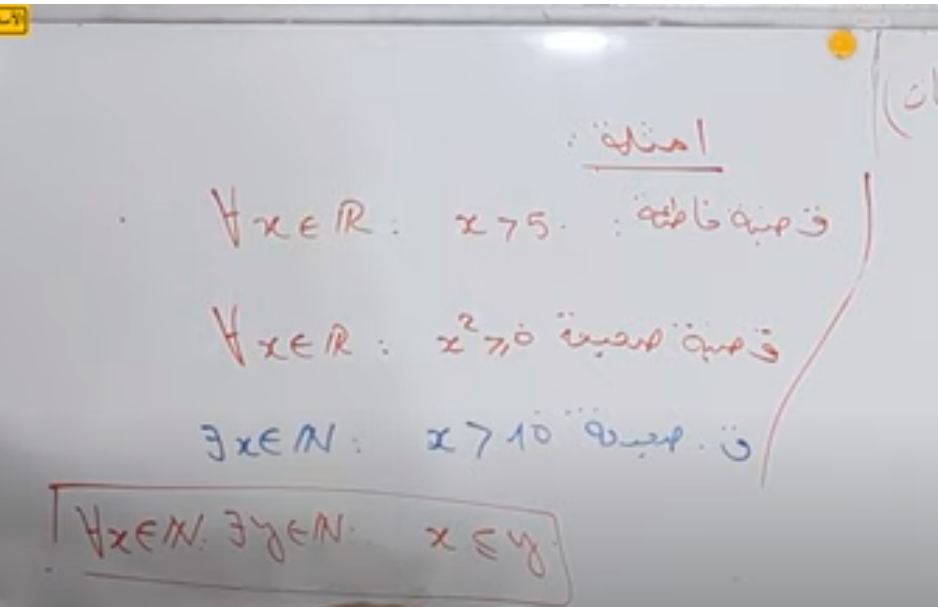 أمثلة:
∀x∈ℝ: x>5. قضية خاطئة:
∀x∈ℝ: x²≥0 قضية صحيحة
∃x∈ℕ: x>10 ق. صحيحة
∀x∈ℕ. ∃y∈ℕ. x≤y